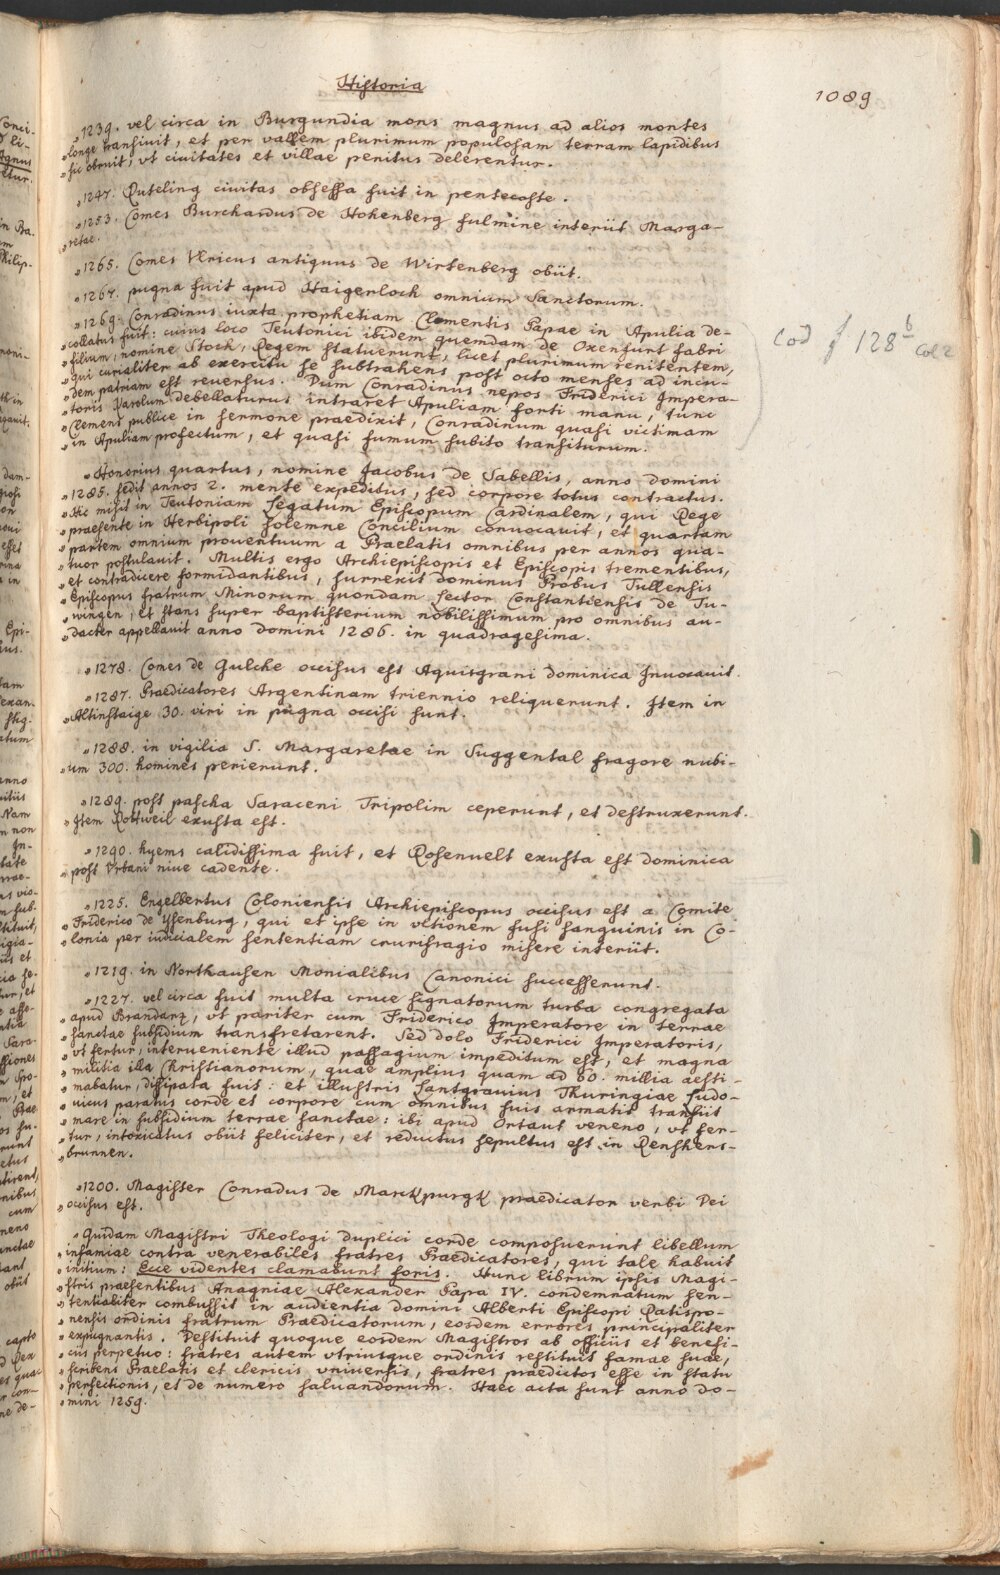 Historia
1089
„1239. vel circa in Burgundia mons magnus ad alios montes
„longe transiuit, et per vallem plurimum populosam terram lapidibus
„sic obruit, vt ciuitates et villae penitus delerentur.
„1247. Ruteling ciuitas obsessa fuit in pentecoste.
„1253. Comes Burchardus de Hohenberg fulmine interiit Marga-
„retae.
„1265. Comes Vlricus antiquus de Wirtenberg obiit.
„1267. pugna fuit apud Haigerloch omnium Sanctorum.
„1269. Conradinus iuxta prophetiam Clementis Papae in Apulia de-
„collatus fuit: cuius loco Teutonici ibidem quemdam de Oxenfurt fabri
„filium, nomine Stock, Regem statuerunt, licet plurimum renitentem,
„qui curialiter ab exercitu se subtrahens post octo menses ad incu-
„dem patriam est reuersus. Dum Conradinus nepos Friderici Impera-
„toris Karolum debellaturus intraret Apuliam forti manu, tunc
„Clemens publice in sermone praedixit, Conradinum quasi victimam
„in Apuliam profectum, et quasi fumum subito transiturum.
Cod f 128b col 2
„Honorius quartus, nomine Jacobus de Sabellis, anno domini
„1285. sedit annos 2. mente expeditus, sed corpore totus contractus.
„Hic misit in Teutoniam Legatum Episcopum Cardinalem, qui Rege
„praesente in Herbipoli solemne Concilium conuocauit, et quartam
„partem omnium prouentuum a Praelatis omnibus per annos qua-
„tuor postulauit. Multis ergo Archiepiscopis et Episcopis trementibus,
„et contradicere formidantibus, surrexit dominus Probus Tullensis
„Episcopus fratrum Minorum quondam Lector Constantiensis de Tu-
„wingen, et stans super baptisterium nobilissimum pro omnibus au-
„dacter appellauit anno domini 1286. in quadragesima.
„1278. Comes de Gulche occisus est Aquisgrani dominica Inuocauit.
„1287. Praedicatores Argentinam triennio reliquerunt. Item in
„Altinstaige 30. viri in pugna occisi sunt.
„1288. in vigilia S. Margaretae in Suggental fragore nubi-
„um 300. homines perierunt.
„1289. post pascha Saraceni Tripolim ceperunt, et destruxerunt.
„Item Rottweil exusta est.
„1290. hyems calidissima fuit, et Rosenuelt exusta est dominica
„post Vrbani niue cadente.
„1225. Engelbertus Coloniensis Archiepiscopus occisus est a Comite
„Friderico de Ysenburg, qui et ipse in vltionem fusi sanguinis in Co-
„lonia per iudicialem sententiam crurifragio misere interiit.
„1219. in Northausen Monialibus Canonici successerunt.
„1227. vel circa fuit multa cruce signatorum turba congregata
„apud Brandanz, vt pariter cum Friderico Imperatore in terrae
„sanctae subsidium transfretarent. Sed dolo Friderici Imperatoris,
„vt fertur, interueniente illud passagium impeditum est, et magna
„militia illa Christianorum, quae amplius quam ad 60. millia aesti-
„mabatur, dissipata fuit: et illustris Lantgrauius Thuringiae Ludo-
„uicus paratus corde et corpore cum omnibus suis armatis transiit
„mare in subsidium terrae sanctae: ibi apud Ortaut veneno, vt fer-
„tur, intoxicatus obiit feliciter, et reductus sepultus est in Renhers-
„brunnen.
„1200. Magister Conradus de Marckpurgk praedicator verbi Dei
„occisus est.
„Quidam Magistri Theologi duplici corde composuerunt libellum
„infamiae contra venerabiles fratres Praedicatores, qui tale habuit
„initium: Ecce videntes clamabunt foris. Hunc librum ipsis Magi-
„stris praesentibus Anagniae Alexander Papa IV. condemnatum sen-
„tentialiter combussit in audientia domini Alberti Episcopi Ratispo-
„nensis ordinis fratrum Praedicatorum, eosdem errores principaliter
„expugnantis. Destituit quoque eosdem Magistros ab officiis et benefi-
„ciis perpetuo: fratres autem vtriusque ordinis restituit famae suae,
„scribens Praelatis et clericis vniuersis, fratres praedictos esse in statu
„perfectionis, et de numero saluandorum. Haec acta sunt anno do-
„mini 1259.